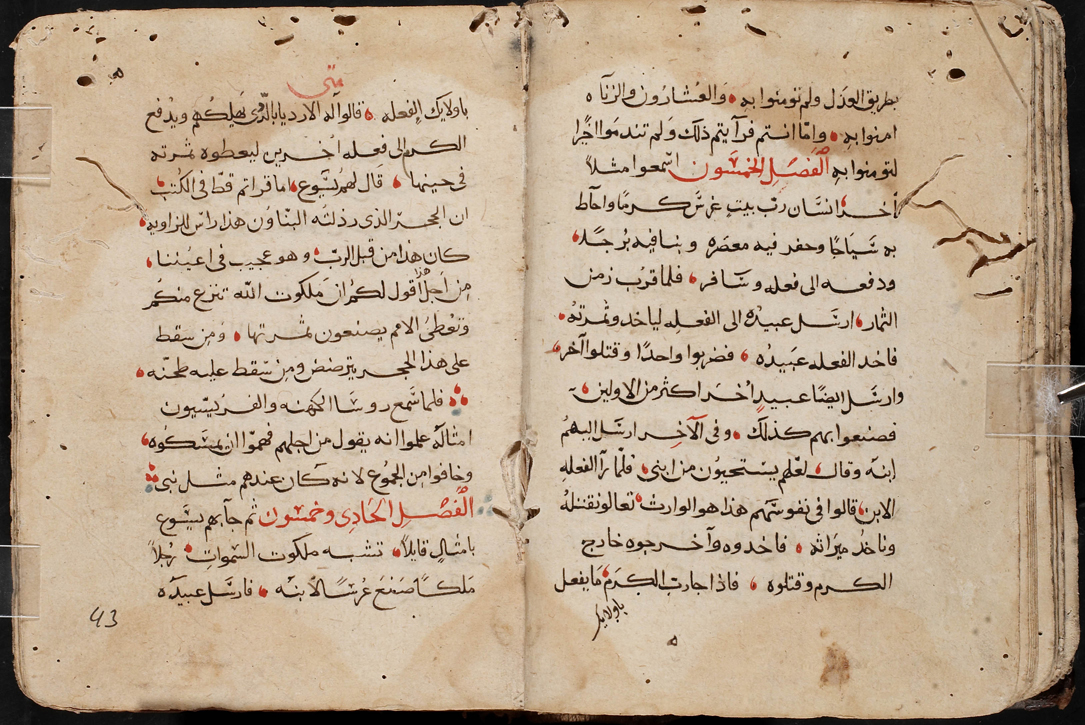 بطريق العدل ولم تومنوا به والعشارون والزناه
امنوا به وامّا انتم فرآيتم ذلك ولم تندموا اخرًا
لتومنوا به الفصل الخمسون اسمعوا مثلاً
آخر انسان ربّ بيت غرس كرمًا واحاط
به سياجًا وحفر فيه معصره وبنا فيه برجًا
ودفعه الى فعله وسافر فلما قرب زمن
الثمار ارسل عبيده الى الفعله لياخد وثمرته
فاخد الفعله عبيده فضربوا واحدًا وقتلوا آخر
وارسل ايضًا عبيد اُخر اكثر من الاولين
فصنعوا بهم كذلك وفى الآخر ارسل اليهم
ابنه وقال لعلهم يستحيون من ابنى فلمّا رآ الفعله
الابن قالوا فى نفوسهم هذا هو الوارث تعالو نقتله
وناخد ميراثه فاخدوه وآخرجوه خارج
الكرم وقتلوه فاذا جا رب الكرم ما يفعل
باولايك
متى
باولايك الفعله قالوا له الارديا بالردى يهلكهم ويدفع
الكرم الى فعله اخرين ليعطوه ثمرته
فى حينها قال لهم يسوع اما قراتم قط فى الكتب
ان الحجر الذى رذلته البناون هذا راس الزاويه
كان هذا من قبل الربّ وهو عجيب فى اعيننا
من اجل هذا اقول لكم ان ملكوت الله تنزع منكم
وتعطى الامم يصنعون ثمرتها ومن سقط
على هذا الحجر يترضض ومن سقط عليه طحنه
فلما سمع روسا الكهنه والفريسيون
امثاله علموا انه يقول من اجلهم فهموا ان يمسكوه
وخافوا من الجموع لانه كان عندهم مثل نبى
الفصل الحادى وخمسون ثم جآبهم يسوع
بامثال قايلاً تشبه ملكوت السموات رجلاً
ملكًا صنع عرسًا لابنه فارسل عبيده
43